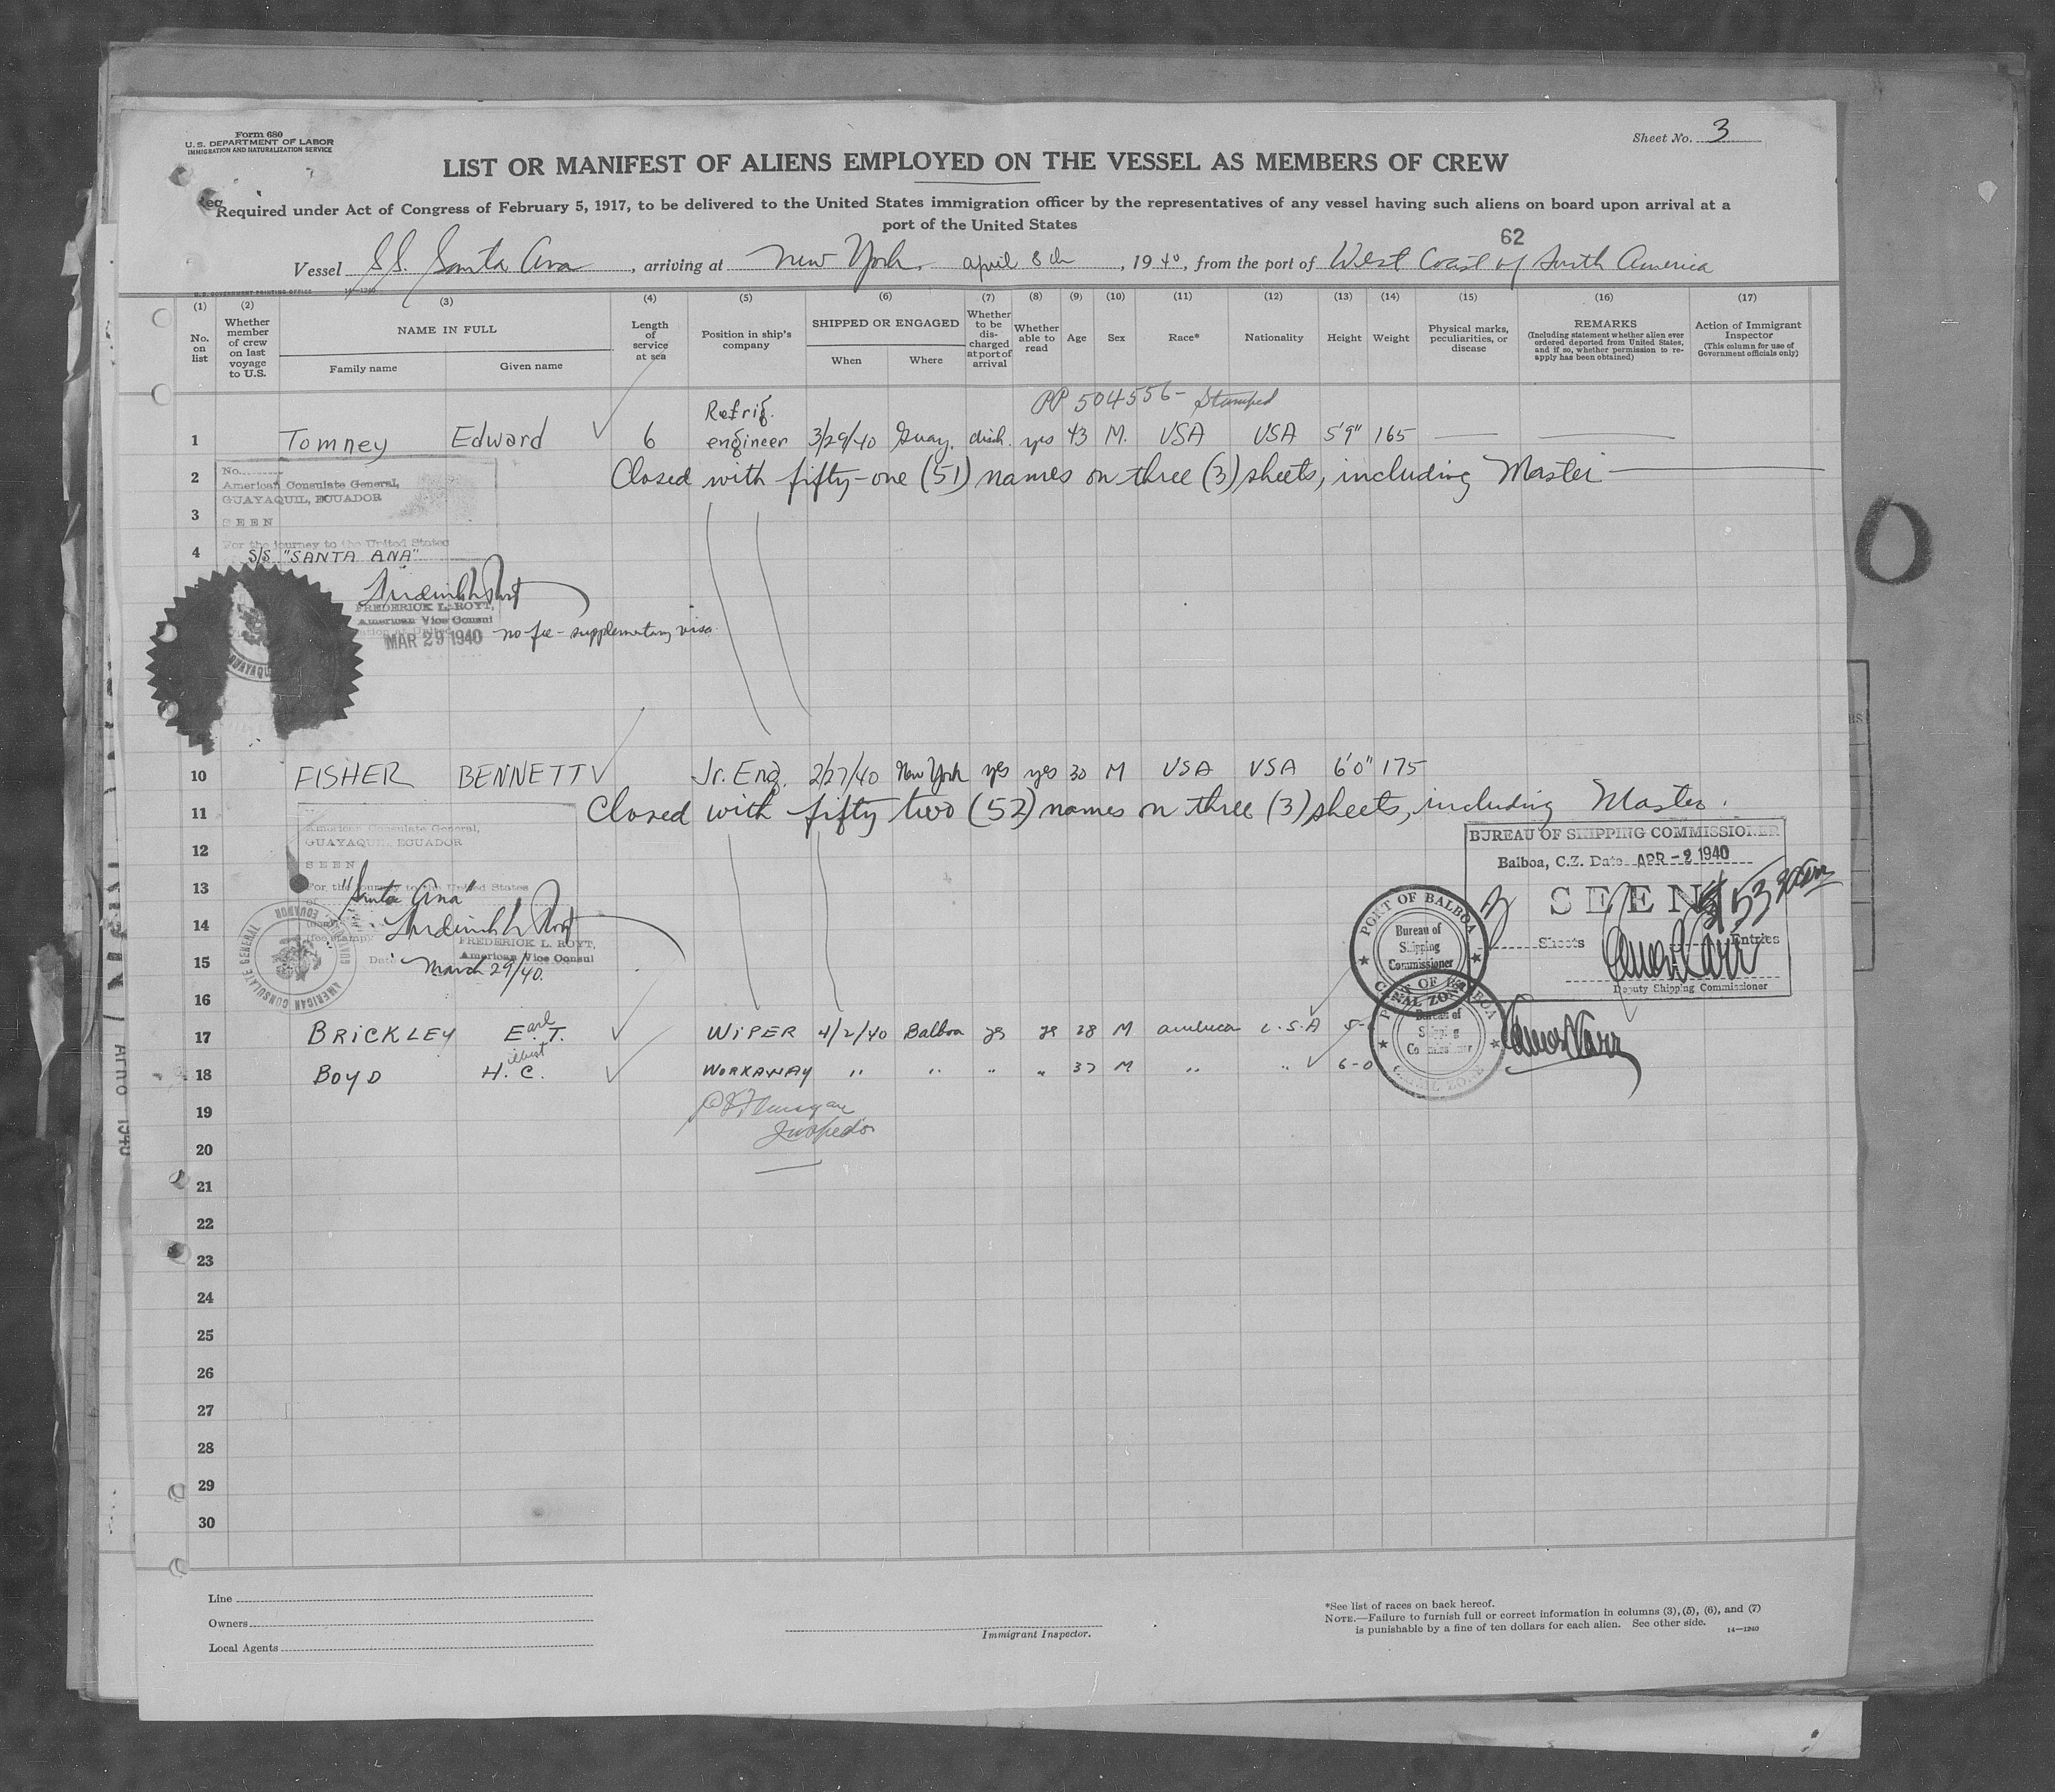 Form 680
U. S. DEPARTMENT OF LABOR
IMMIGRATION AND NATURALIZATION SERVICE
Sheet No. 3
LIST OR MANIFEST OF ALIENS EMPLOYED ON THE VESSEL AS MEMBERS OF CREW
Required under Act of Congress of February 5, 1917, to be delivered to the United States immigration officer by the representatives of any vessel having such aliens on board upon arrival at a
port of the United States
62
Vessel S.S. Santa Ana, arriving at New York, april 8th, 1940, from the port of West Coast of South America
U. S. GOVERNMENT PRINTING OFFICE 14—1240
(1) (2) (3) (4) (5) (6) (7) (8) (9) (10) (11) (12) (13) (14) (15) (16) (17)
No. on list
Whether member of crew on last voyage to U.S.
NAME IN FULL
Family name Given name
Length of service at sea
Position in ship's company
SHIPPED OR ENGAGED
When Where
Whether to be discharged at port of arrival
Whether able to read
Age
Sex
Race*
Nationality
Height
Weight
Physical marks, peculiarities, or disease
REMARKS
(Including statement whether alien ever ordered deported from United States, and if so, whether permission to re-apply has been obtained)
Action of Immigrant Inspector
(This column for use of Government officials only)
PP 504556- Stamped
1 Tomney Edward 6 Refrig. engineer 3/29/40 Guay. disch. yes 43 M. USA USA 5'9" 165
2 Closed with fifty-one (51) names on three (3) sheets, including Master
No.
American Consulate General,
GUAYAQUIL, ECUADOR
3
SEEN
For the journey to the United States
4 S/S "SANTA ANA"
FREDERICK L. ROYT,
American Vice Consul
MAR 29 1940 no fee - supplementary visa
10 FISHER BENNETT Jr. Eng. 2/27/40 New York yes yes 30 M USA USA 6'0" 175
11 Closed with fifty two (52) names on three (3) sheets, including Master.
American Consulate General,
GUAYAQUIL, ECUADOR
12
SEEN
13 For the journey to the United States
"Santa Ana"
14
FREDERICK L. ROYT,
American Vice Consul
15 Date March 29/40.
AMERICAN CONSULATE GENERAL
BUREAU OF SHIPPING COMMISSIONER
Balboa, C.Z. Date APR -2 1940
SEEN
53
Sheets Entries
Deputy Shipping Commissioner
PORT OF BALBOA
Bureau of Shipping Commissioner
CANAL ZONE
16
17 BRICKLEY Earl T. WIPER 4/2/40 Balboa ys ys 28 M america U.S.A 5-
18 BOYD H. C. WORKAWAY " " " " 37 M " " 6-0
Bureau of
CANAL ZONE
19
20
21
22
23
24
25
26
27
28
29
30
Line
Owners
Local Agents
Immigrant Inspector.
*See list of races on back hereof.
NOTE.—Failure to furnish full or correct information in columns (3), (5), (6), and (7)
is punishable by a fine of ten dollars for each alien. See other side. 14—1240